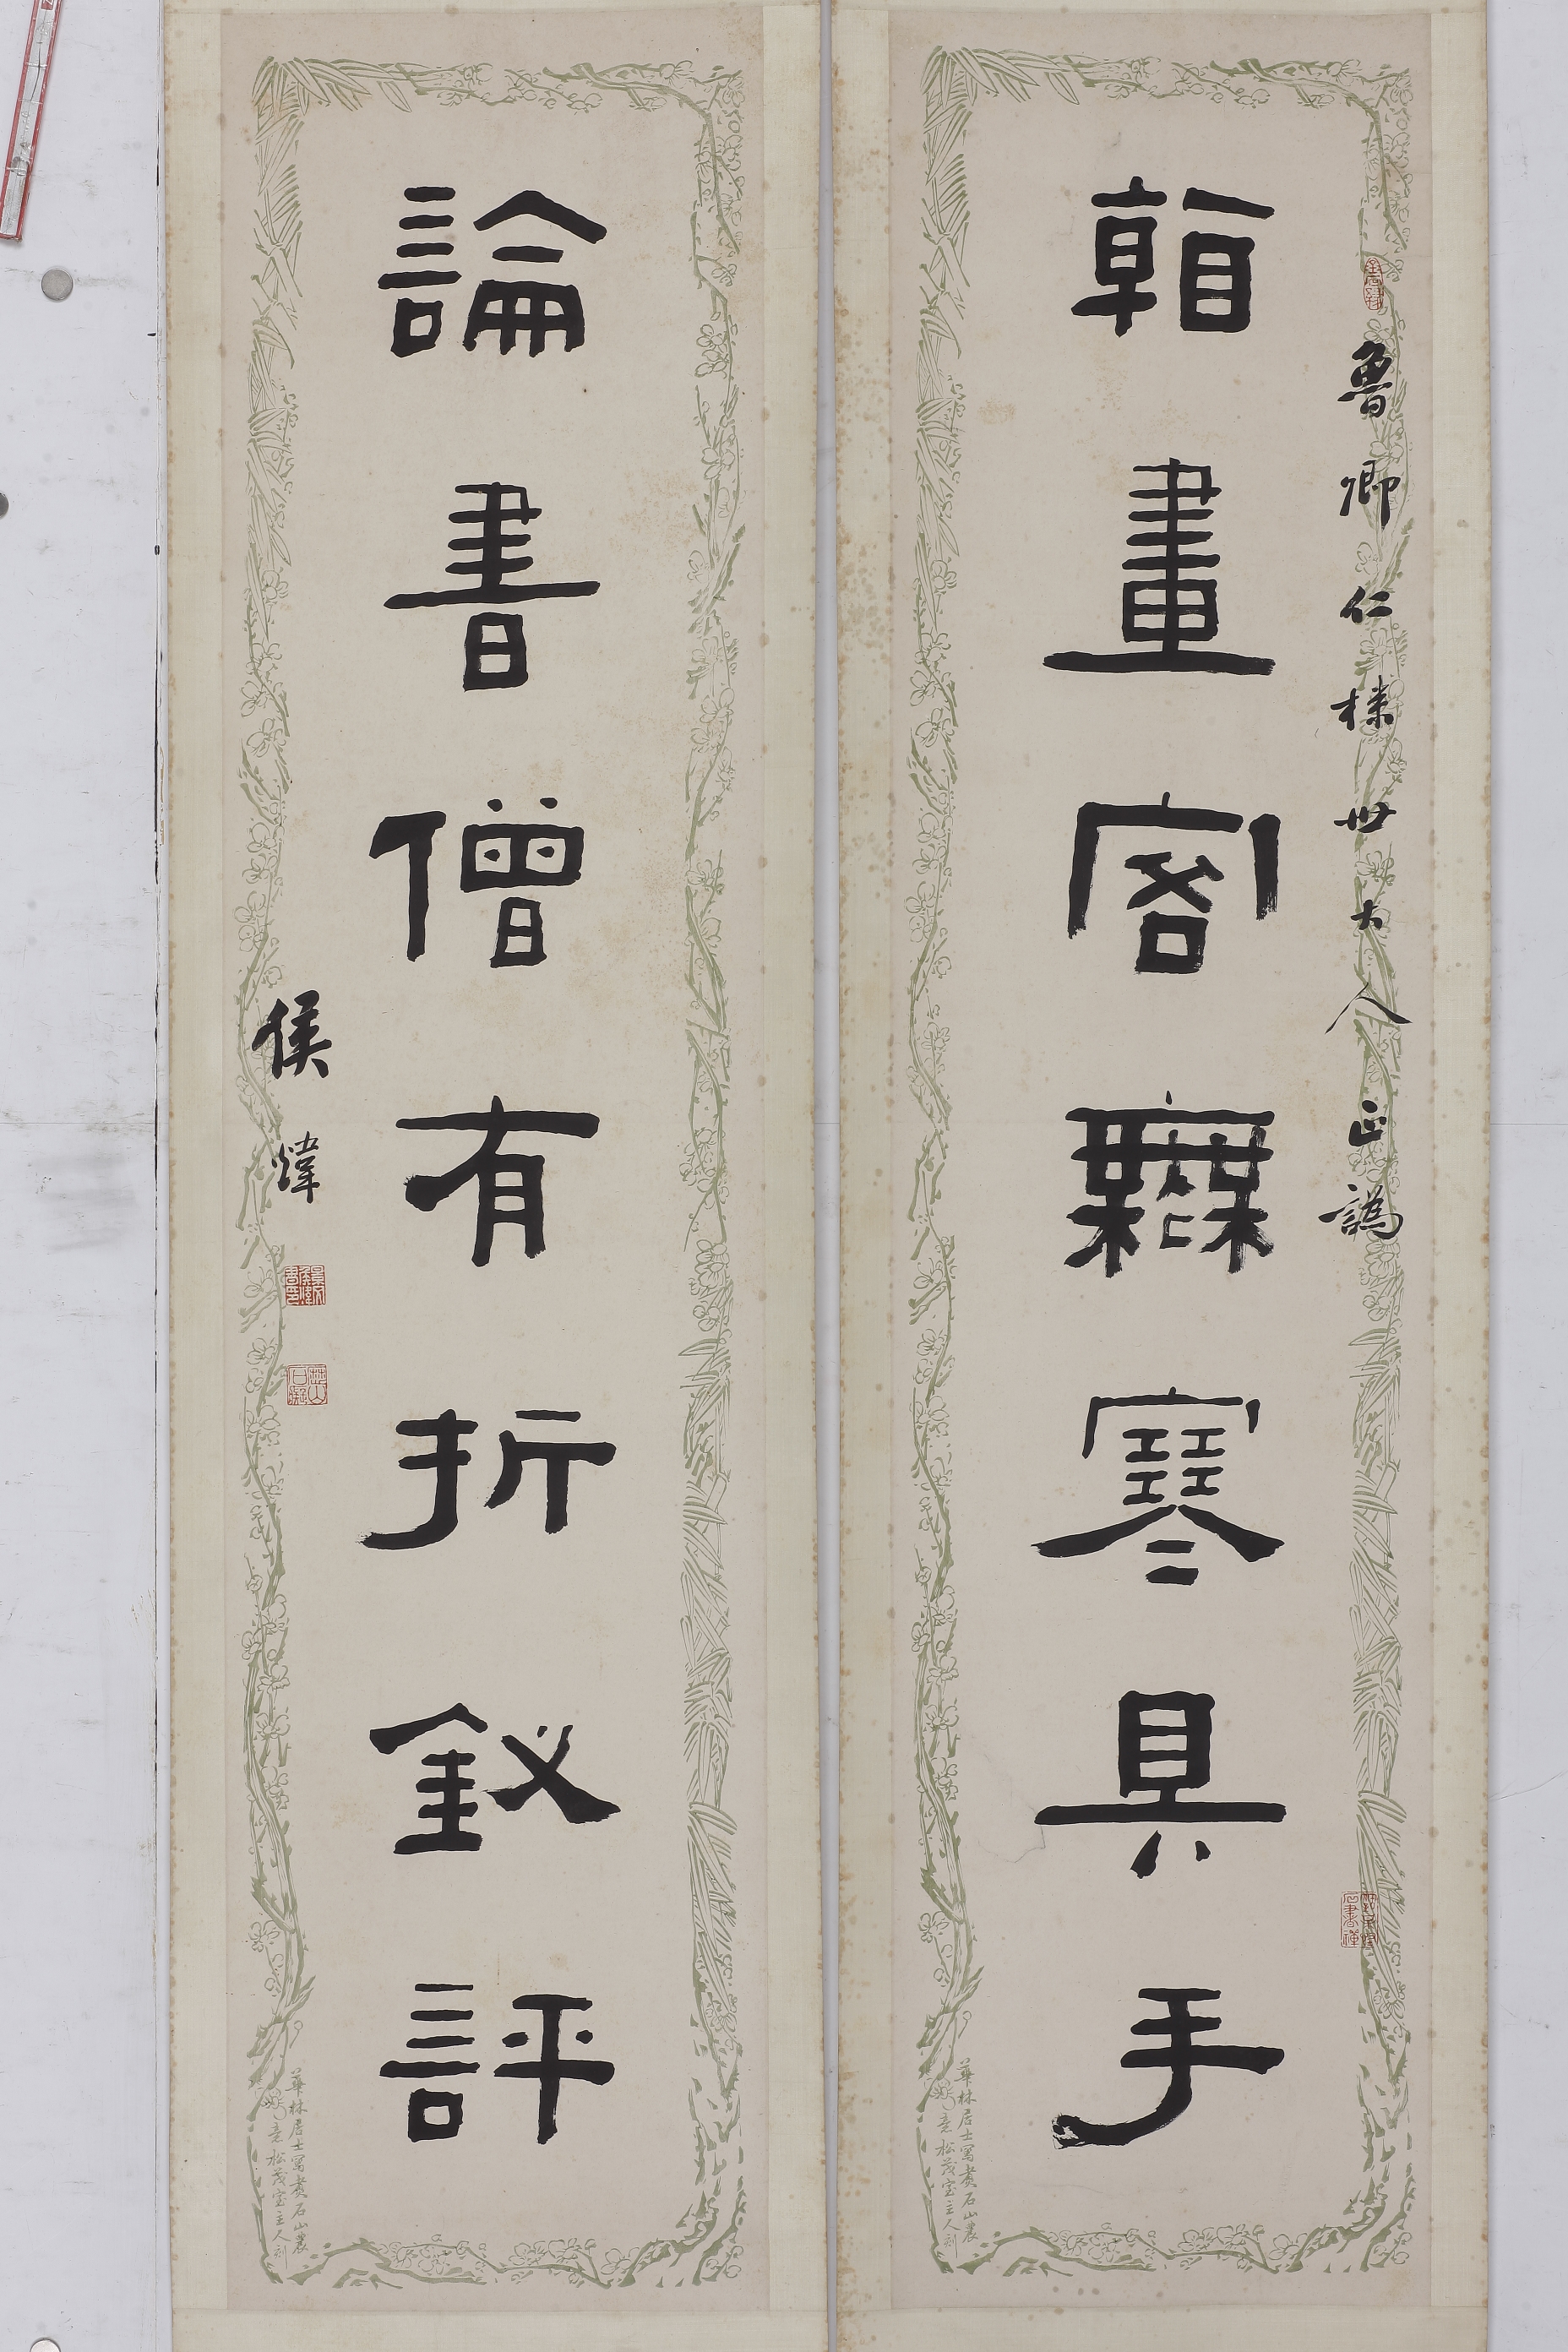 魯卿仁棣世大人正譌
看畫客無寒具手
華林居士寫煑石山農
意松茂室主人制
論書僧有折釵評
侯煒
華林居士寫煑石山農
意松茂室主人制